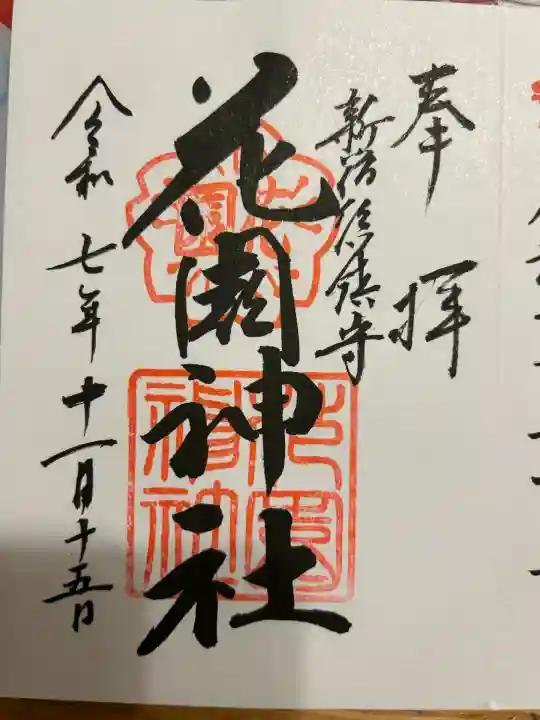 奉拝
新宿総鎮守
花園神社
令和七年十一月十五日
花園神社